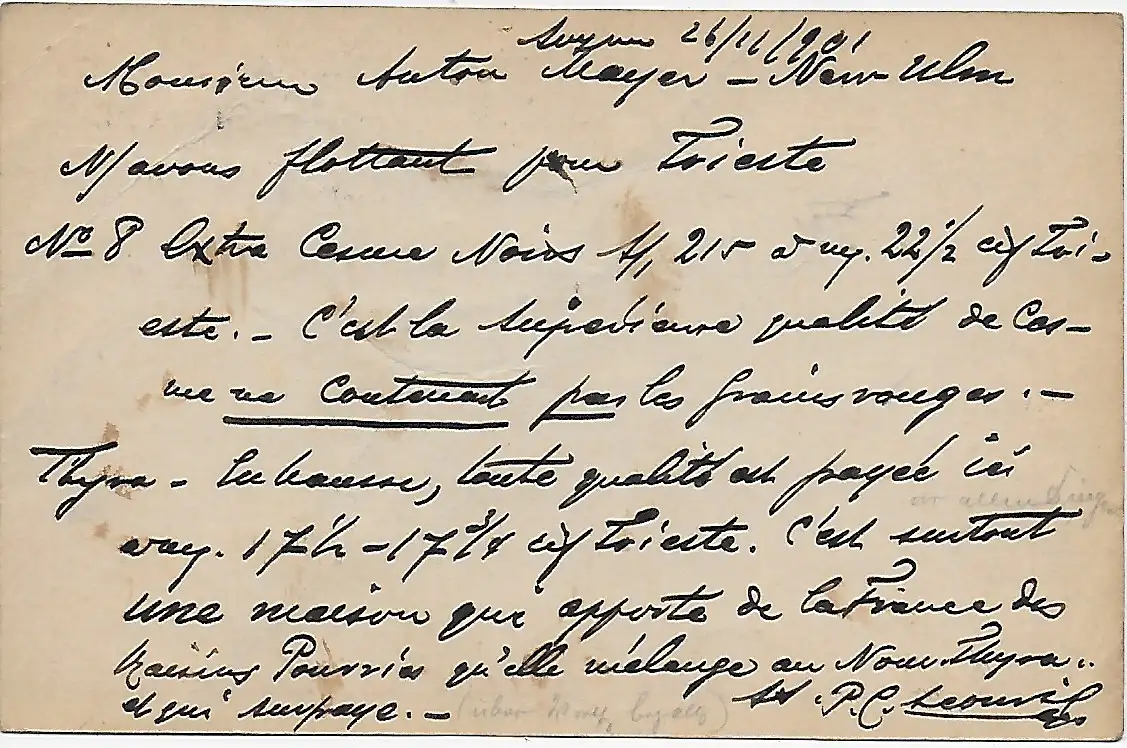 26/11/901
Monsieur Anton Mayer – New-Ulm
N/avons flottant pour Trieste
No 8 Extra Cesme Noirs 215 à 22 1/2 cif Tri-
este. – C'est la supérieure qualité de Ces-
me ne contenant pas les grains rouges. –
Thyra – En hausse, toute qualité est payée ici
17 1/2 – 17 3/4 cif Trieste. C'est surtout
une maison qui apporte de la France des
Raisins Pourris qu'elle mélange au Nom Thyra..
et qui surpaye. –